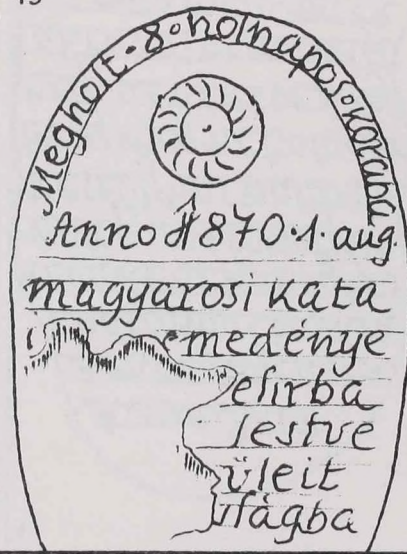 Megholt·8·holnapos·Koraba
Anno H870·1·aug.
magyarosi Kata
emedénye
esirba
testve
üleit